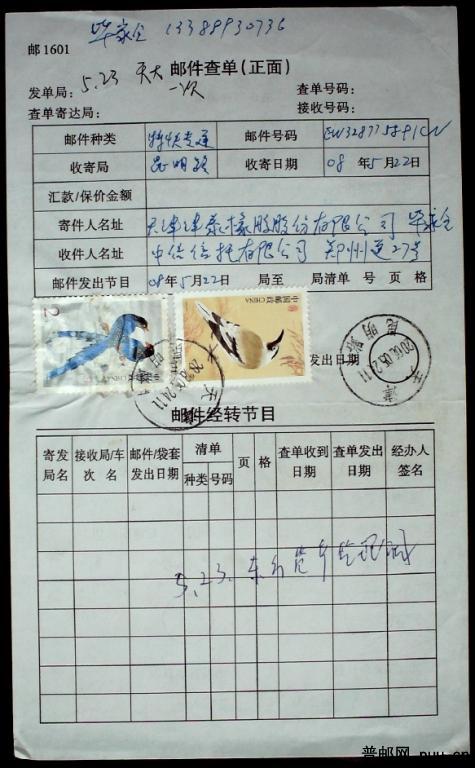 毕家全 13389930736
邮1601
5.23 天大 邮件查单(正面)
发单局: 一次 查单号码:
查单寄达局: 接收号码:
邮件种类 特快专递 邮件号码
收寄局 昆明路 收寄日期 08年5月22日
汇款/保价金额
寄件人名址 橡胶股份有限公司 毕家全
收件人名址 中信信托有限公司 郑州道27号
邮件发出节目 08年5月22日 局至 局清单 号 页 格
2
中国邮政 CHINA
发出日期
天津
昆明路
邮件经转节目
寄发局名 接收局/车次名 邮件/袋套发出日期 清单 页 格 查单收到日期 查单发出日期 经办人签名
种类 号码
5.23.
普邮网 puu.cn